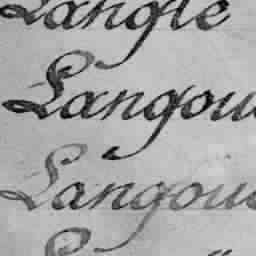 Langle
Langou
Langou